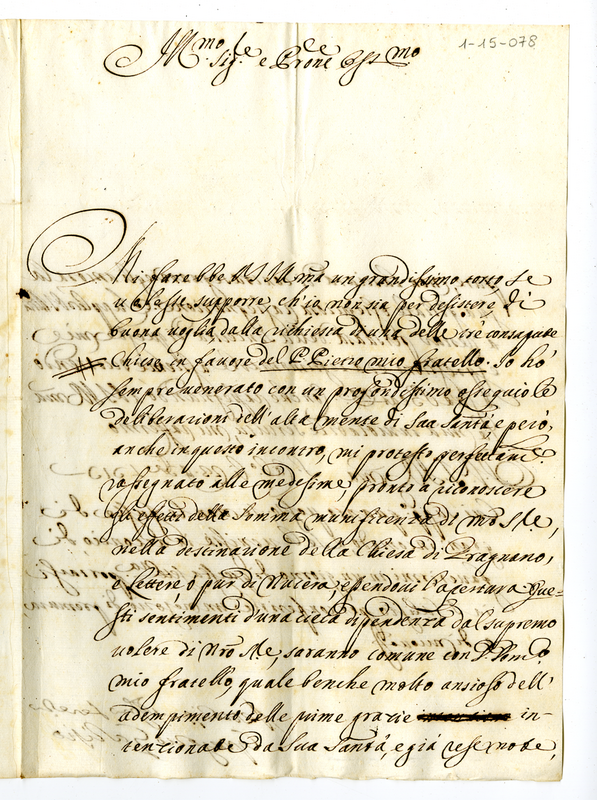 1-15-078
Ill.mo Sig.re e P.rone Oss.mo
Mi farebbe V.S. Ill.ma un grandissimo torto, se
volesse supporre, ch'io non sia per desistere di
buona voglia dalla richiesta d'una delle trè consapute
Chiese in favore del P. Pietro mio fratello. Io hò
sempre venerato con un profondissimo ossequio le
deliberazioni dell'alta mente di Sua Santà, e però,
anche in questo incontro, mi protesto perfettam.e
rassegnato alle medesime, pronto à riconoscere
gli effetti della somma munificenza di
nella destinazione della Chiesa di Gragnano,
e Lettere, ò pur di Nucera, essendovi l'apertura. Que-
sti sentimenti d'una cieca dipendenza dal supremo
volere di Nrô Sre, saranno comune con
mio fratello, quale benche molto ansioso dell'
adempimento delle prime grazie in-
tenzionate da Sua Santà, e già rese note,